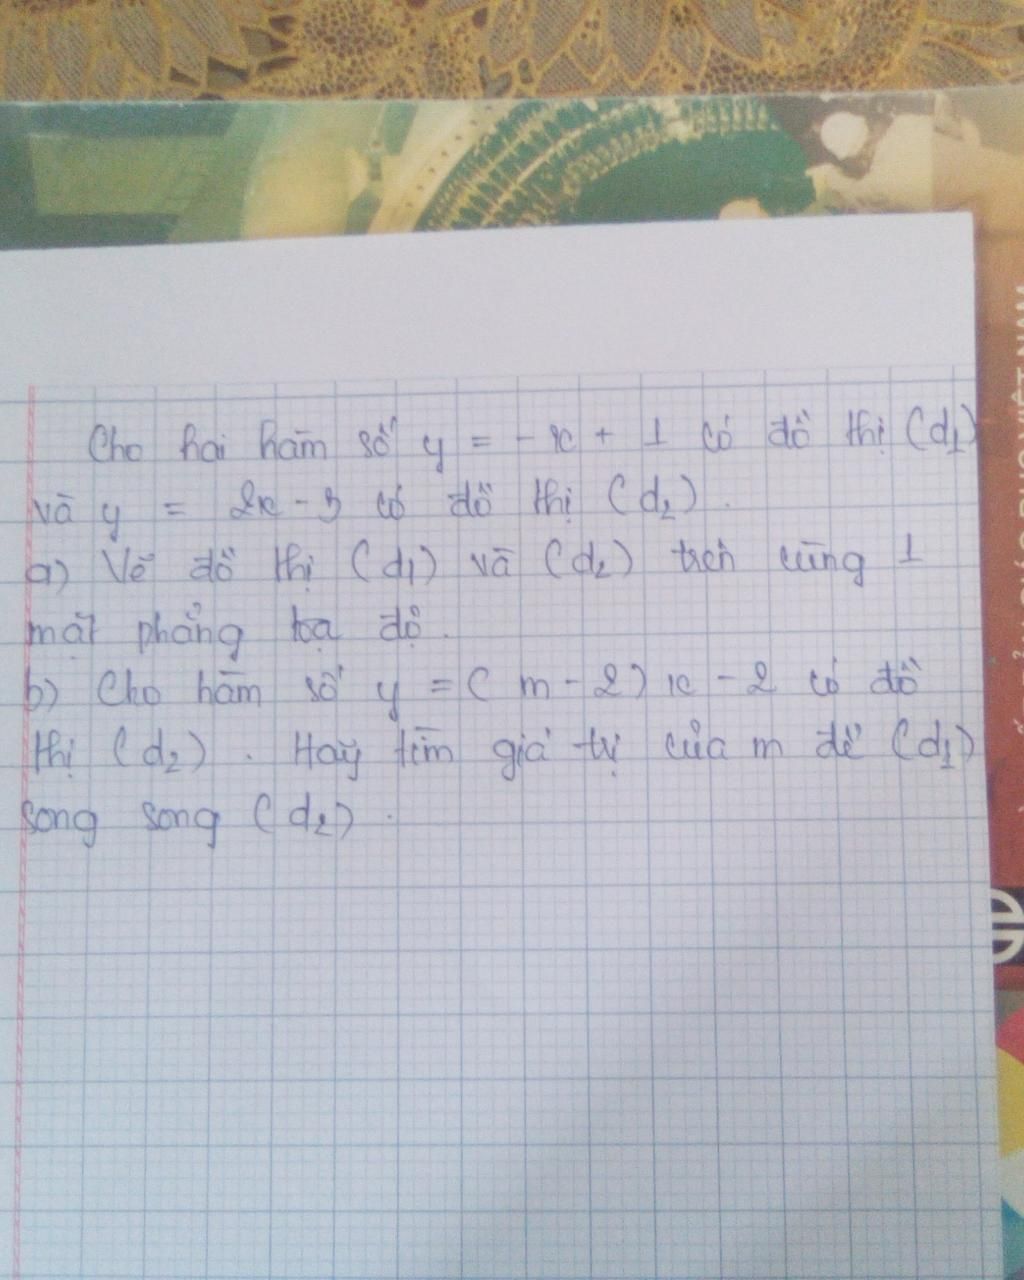 Cho hai hàm số y = - x + 1 có đồ thị (d1)
và y = 2x - 3 có đồ thị (d2).
a) Vẽ đồ thị (d1) và (d2) trên cùng 1
mặt phẳng tọa độ.
b) Cho hàm số y = (m - 2) x - 2 có đồ
thị (d2). Hãy tìm giá trị của m để (d1)
song song (d2).
VIỆT NAM